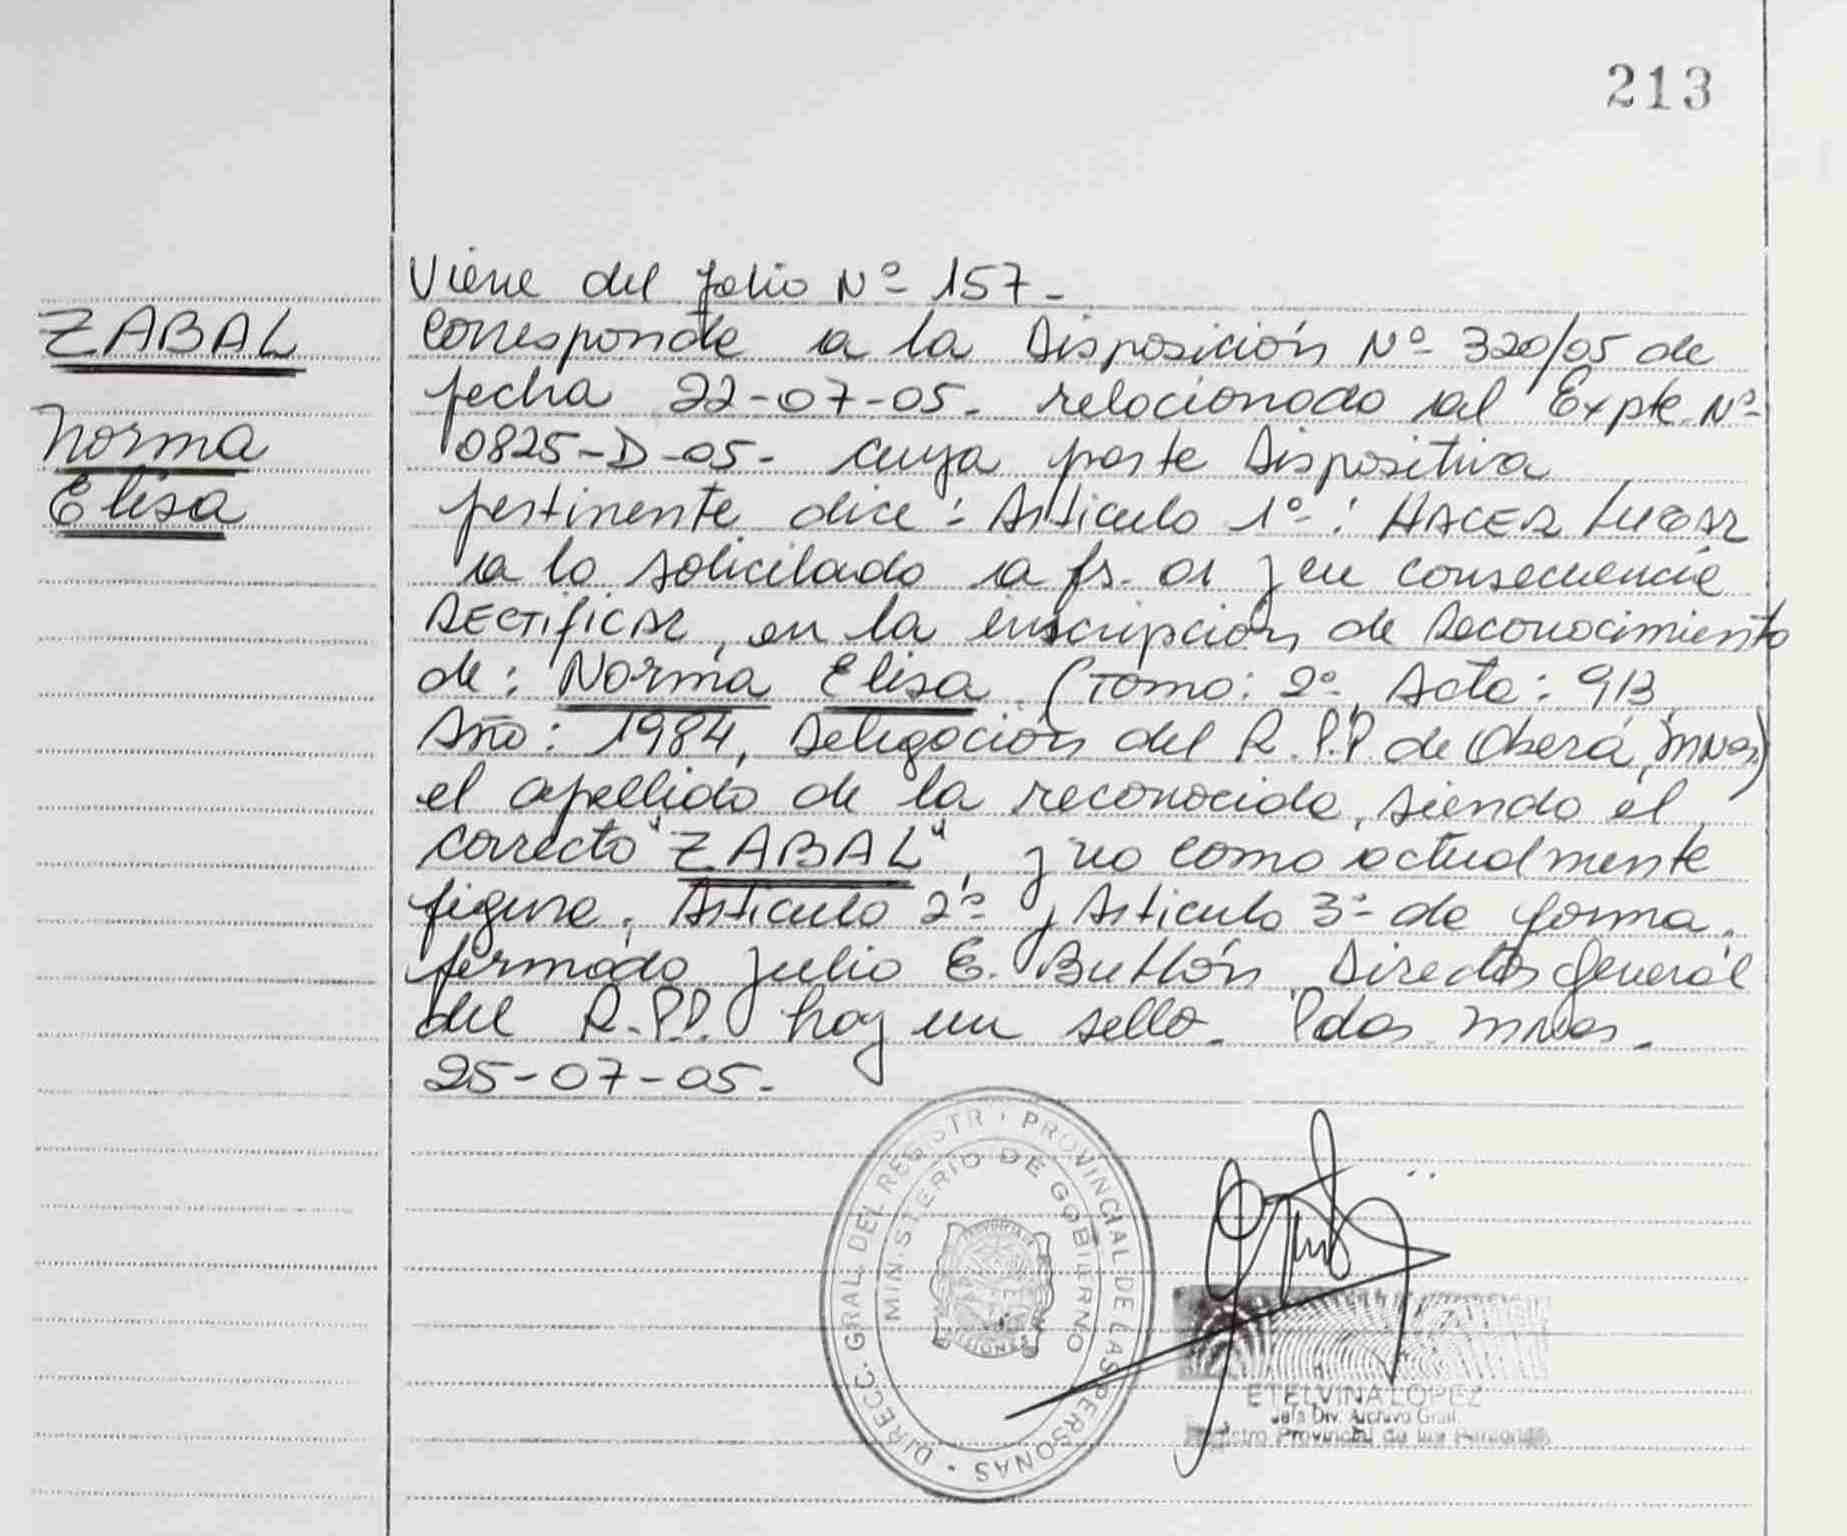 213
ZABAL
Norma
Elisa
Viene del folio Nº 157-
Corresponde a la Disposición Nº 320/05 de
fecha 22-07-05- relacionado al Expte. Nº
0825-D-05- cuya parte Dispositiva
pertinente dice: Articulo 1º: HACER LUGAR
a lo solicitado a fs. 01 y en consecuencia
RECTIFICAR, en la inscripción de Reconocimiento
de: Norma Elisa (Tomo: 2º, Acta: 913,
Año: 1984, Delegación del R.P.P. de Oberá, Mnes)
el apellido de la reconocida, siendo el
correcto "ZABAL", y no como actualmente
figura. Articulo 2º y Articulo 3º de forma.
firmado Julio E. Buttón Director General
del R.P.P. hay un sello. Pdas Mnes.
25-07-05.
DIRECC. GRAL. DEL REGISTR PROVINCIAL DE LAS PERSONAS
MINISTERIO DE GOBIERNO
ETELVINA LOPEZ
Jefa Div. Archivo Gral.
Registro Provincial de las Personas